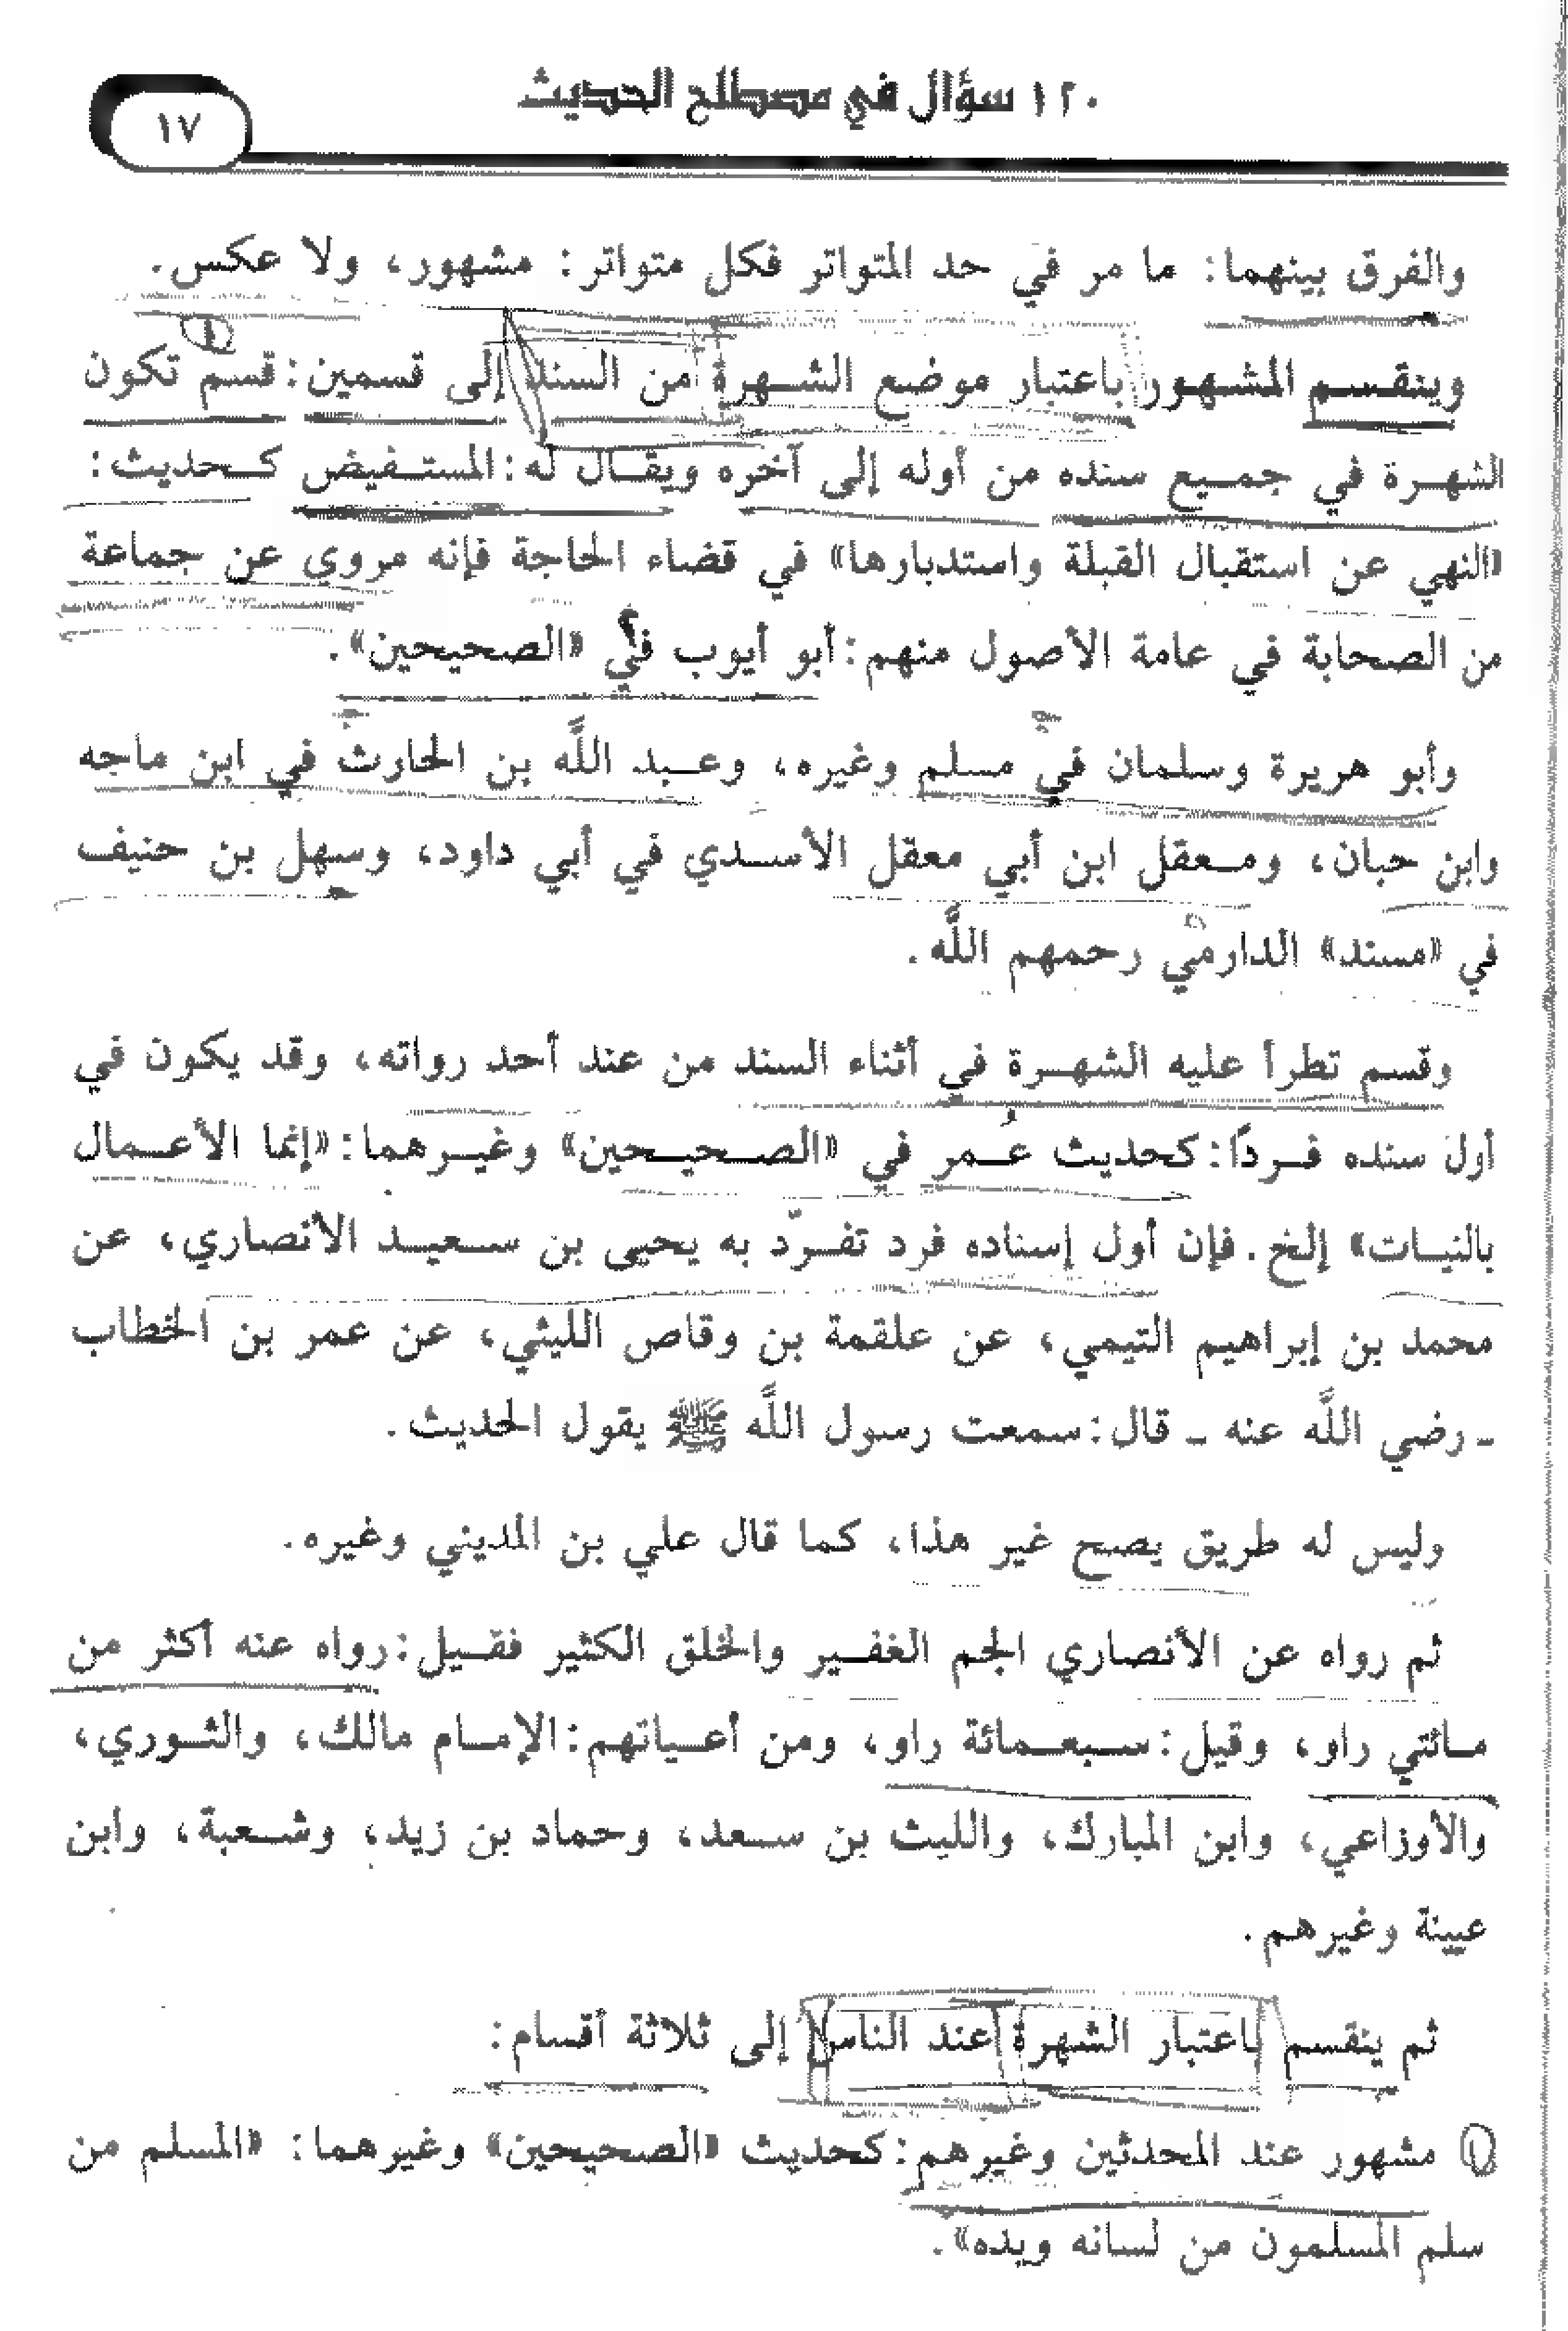 ١٢٠ سؤال في مصطلح الحديث
١٧
والفرق بينهما: ما مر في حد المتواتر فكل متواتر: مشهور، ولا عكس.
وينقسم المشهور باعتبار موضع الشهرة من السند إلى قسمين: قسم تكون
الشهرة في جميع سنده من أوله إلى آخره ويقال له: المستفيض كحديث:
«النهي عن استقبال القبلة واستدبارها» في قضاء الحاجة فإنه مروى عن جماعة
من الصحابة في عامة الأصول منهم: أبو أيوب في «الصحيحين».
وأبو هريرة وسلمان في مسلم وغيره، وعبد اللَّه بن الحارث في ابن ماجه
وابن حبان، ومعقل ابن أبي معقل الأسدي في أبي داود، وسهل بن حنيف
في «مسند» الدارمي رحمهم اللَّه.
وقسم تطرأ عليه الشهرة في أثناء السند من عند أحد رواته، وقد يكون في
أول سنده فردًا: كحديث عُمر في «الصحيحين» وغيرهما: «إنما الأعمال
بالنيات» إلخ. فإن أول إسناده فرد تفرّد به يحيى بن سعيد الأنصاري، عن
محمد بن إبراهيم التيمي، عن علقمة بن وقاص الليثي، عن عمر بن الخطاب
ـ رضي اللَّه عنه ـ قال: سمعت رسول اللَّه ﷺ يقول الحديث.
وليس له طريق يصح غير هذا، كما قال علي بن المديني وغيره.
ثم رواه عن الأنصاري الجم الغفير والخلق الكثير فقيل: رواه عنه أكثر من
مائتي راو، وقيل: سبعمائة راو، ومن أعياتهم: الإمام مالك، والثوري،
والأوزاعي، وابن المبارك، والليث بن سعد، وحماد بن زيد، وشعبة، وابن
عيينة وغيرهم.
ثم ينقسم باعتبار الشهرة عند الناس إلى ثلاثة أقسام:
١ مشهور عند المحدثين وغيرهم: كحديث «الصحيحين» وغيرهما: «المسلم من
سلم المسلمون من لسانه ويده».